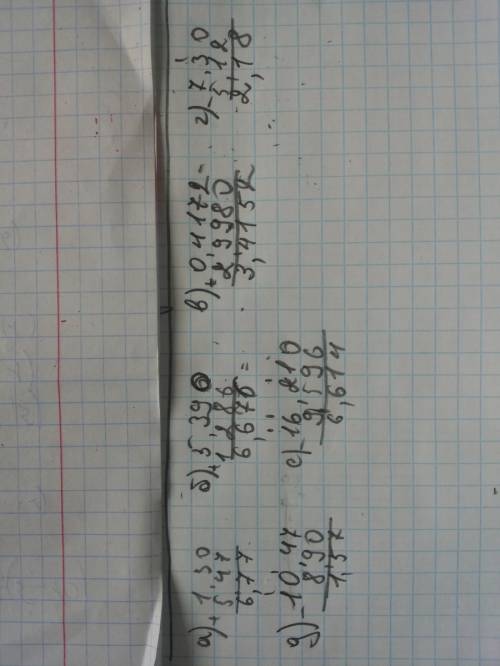 а) + 1,30
5,47
6,77
б) + 5,390
1,286
6,676 =
в) + 0,4172 -
2,9980
3,4152
г) - 7,30
5,12
2,18
д) - 10,47
8,90
1,57
е) - 16,210
9,596
6,614